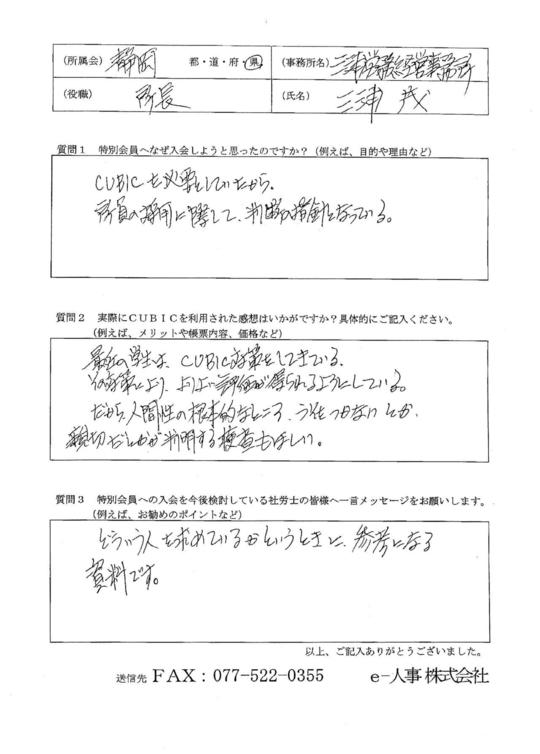 (所属会) 静岡 都・道・府・県
(事務所名) 三浦労務経営事務所
(役職) 所長
(氏名) 三浦 茂
質問1 特別会員へなぜ入会しようと思ったのですか?(例えば、目的や理由など)
CUBICを必要としていたから。
所員の採用に際して、判断の指針となっている。
質問2 実際にCUBICを利用された感想はいかがですか?具体的にご記入ください。
(例えば、メリットや帳票内容、価格など)
最近の学生は、CUBIC対策をしてきている。
その対策により、よりよい評価が得られるようにしている。
だから、人間性の根本的なところ、うそをつかないとか、
親切だとかが判明する検査もほしい。
質問3 特別会員への入会を今後検討している社労士の皆様へ一言メッセージをお願いします。
(例えば、お勧めのポイントなど)
どういう人を求めているかというときに、参考になる
資料です。
以上、ご記入ありがとうございました。
送信先 FAX:077-522-0355 e-人事株式会社